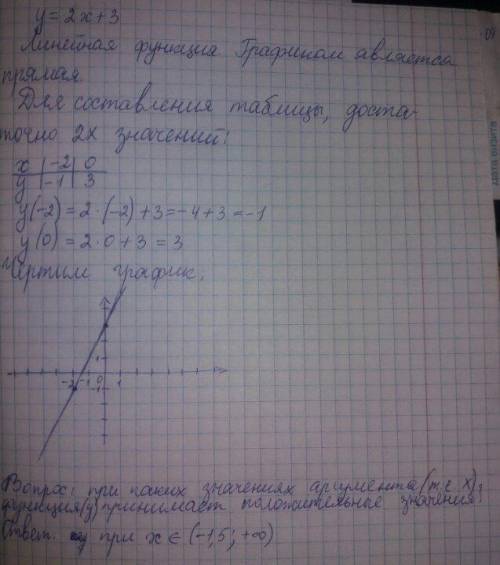 y=2x+3
Линейная функция Графиком является
прямая.
Для составления таблицы, доста-
точно 2х значений:
x | -2 | 0
y | -1 | 3
y(-2) = 2·(-2)+3=-4+3=-1
y(0) = 2·0+3=3
Чертим график.
1
-2 -1 0 1
-1
Вопрос: при каких значениях аргумента (т.е. x),
функция(y) принимает положительные значения?
Ответ: при x ∈ (-1,5; +∞)